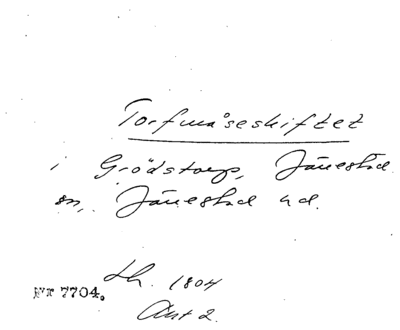 Torfmåseskiftet
i Grödstorp, Järrestad
sn, Järrestad hd.
Lh. 1804
Akt 2.
NT 7704.